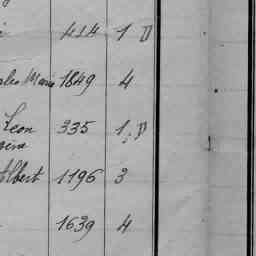 414 1 D
Marie 1849 4
Leon 335 1 D
Albert 1196 3
1639 4